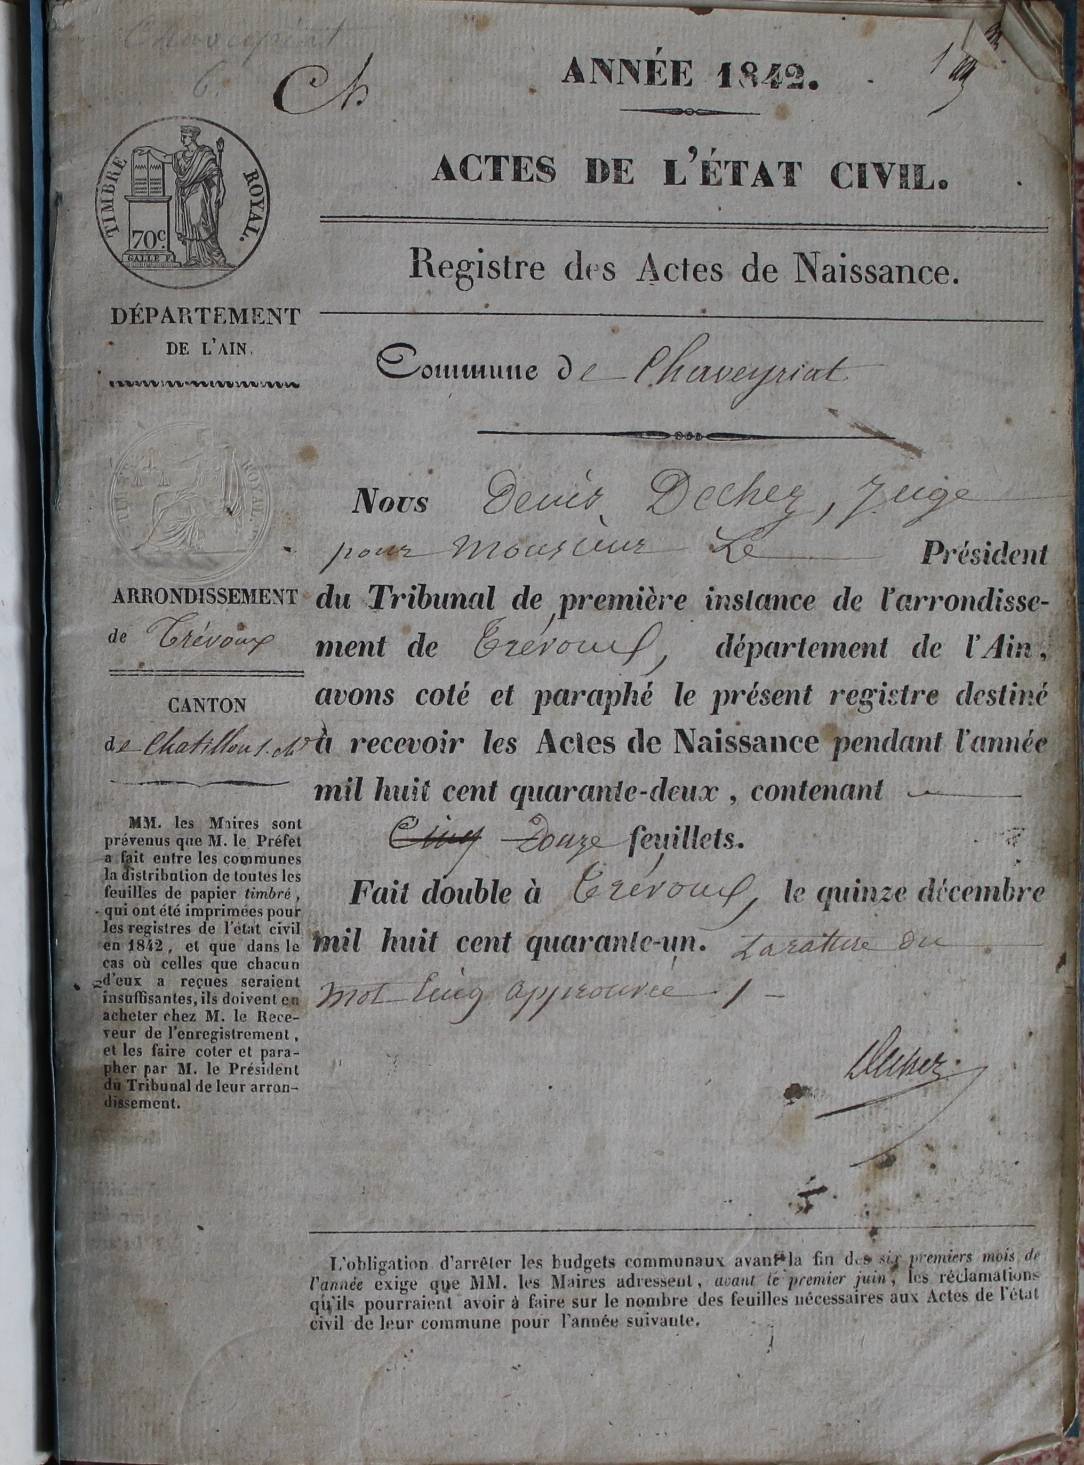 Chaveyriat
6.
Ch
ANNÉE 1842.
ACTES DE L'ÉTAT CIVIL.
TIMBRE ROYAL.
70c.
Registre des Actes de Naissance.
DÉPARTEMENT
DE L'AIN.
Commune de Chaveyriat
Nous Denis Dechez, Juge
pour Monsieur Le Président
ARRONDISSEMENT
de Trévoux
du Tribunal de première instance de l'arrondisse-
ment de Trévoux, département de l'Ain,
avons coté et paraphé le présent registre destiné
CANTON
de Chatillon s. Ch
à recevoir les Actes de Naissance pendant l'année
mil huit cent quarante-deux, contenant
Cinq Douze feuillets.
Fait double à Trévoux, le quinze décembre
mil huit cent quarante-un. La rature du
mot cinq approuvée
Dechez
MM. les Maires sont
prévenus que M. le Préfet
a fait entre les communes
la distribution de toutes les
feuilles de papier timbré,
qui ont été imprimées pour
les registres de l'état civil
en 1842, et que dans le
cas où celles que chacun
d'eux a reçues seraient
insuffisantes, ils doivent en
acheter chez M. le Rece-
veur de l'enregistrement,
et les faire coter et para-
pher par M. le Président
du Tribunal de leur arron-
dissement.
L'obligation d'arrêter les budgets communaux avant la fin des six premiers mois de
l'année exige que MM. les Maires adressent, avant le premier juin, les réclamations
qu'ils pourraient avoir à faire sur le nombre des feuilles nécessaires aux Actes de l'état
civil de leur commune pour l'année suivante.